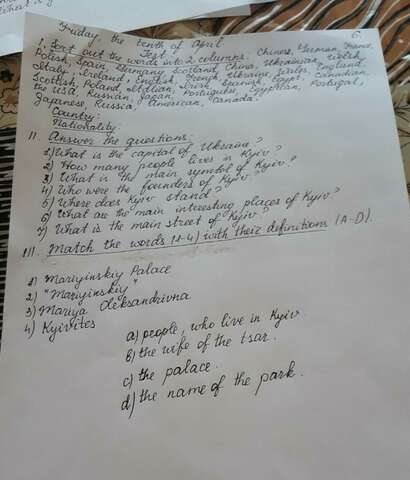 what is
Friday, the tenth of April
Test 5 6.
I. Sort out the words into 2 columns: Chinese, German, France,
Polish, Spain, Germany, Scotland, China, Ukrainian, Welsh,
Italy, Ireland, English, French, Ukraine, Wales, England,
Scottish, Poland, Italian, Irish, Spanish, Egypt, Canadian,
the USA, Russian, Japan, Portuguese, Egyptian, Portugal,
Japanese, Russia, American, Canada.
Country:
Nationality:
II. Answer the questions:
1) What is the capital of Ukraine?
2) How many people lives in Kyiv?
3) What is the main symbol of Kyiv?
4) Who were the founders of Kyiv?
5) Where does Kyiv stand?
6) What are the main interesting places of Kyiv?
7) What is the main street of Kyiv?
III. Match the words (1-4) with their definitions (A-D).
1) Mariyinskiy Palace
2) "Mariyinskiy"
3) Mariya Oleksandrivna
4) Kyivites
a) people, who live in Kyiv.
b) the wife of the tsar.
c) the palace.
d) the name of the park.